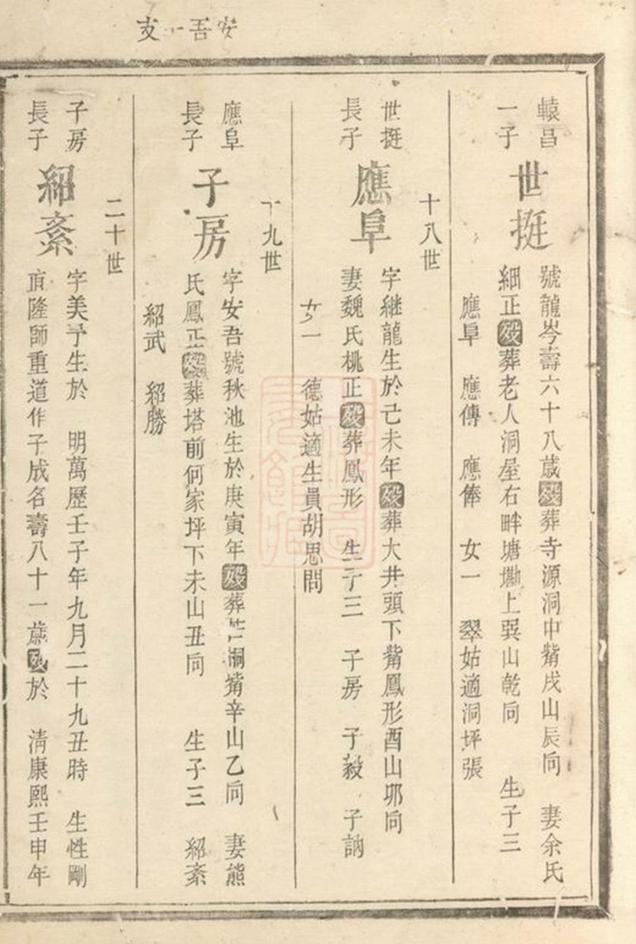 安吾一支
轅昌
一子
世挺
號龍岑壽六十八歲歿葬寺源洞中觜戌山辰向　妻余氏
細正歿葬老人洞屋右畔塘墈上巽山乾向　生子三
應阜　應傳　應俸　女一　翠姑適洞坪張
十八世
世挺
長子
應阜
字继龍生於己未年歿葬大井頭下觜鳳形酉山卯向
妻魏氏桃正歿葬鳳形　生子三　子房　子毅　子訥
女一　德姑適生員胡思問
十九世
應阜
長子
子房
字安吾號秋池生於庚寅年歿葬洞觜辛山乙向　妻熊
氏鳳正歿葬塔前何家坪下未山丑向　生子三　紹紊
紹武　紹勝
二十世
子房
長子
紹紊
字美予生於　明萬歷壬子年九月二十九丑時　生性剛
直隆師重道作子成名壽八十一歲歿於　淸康熙壬申年